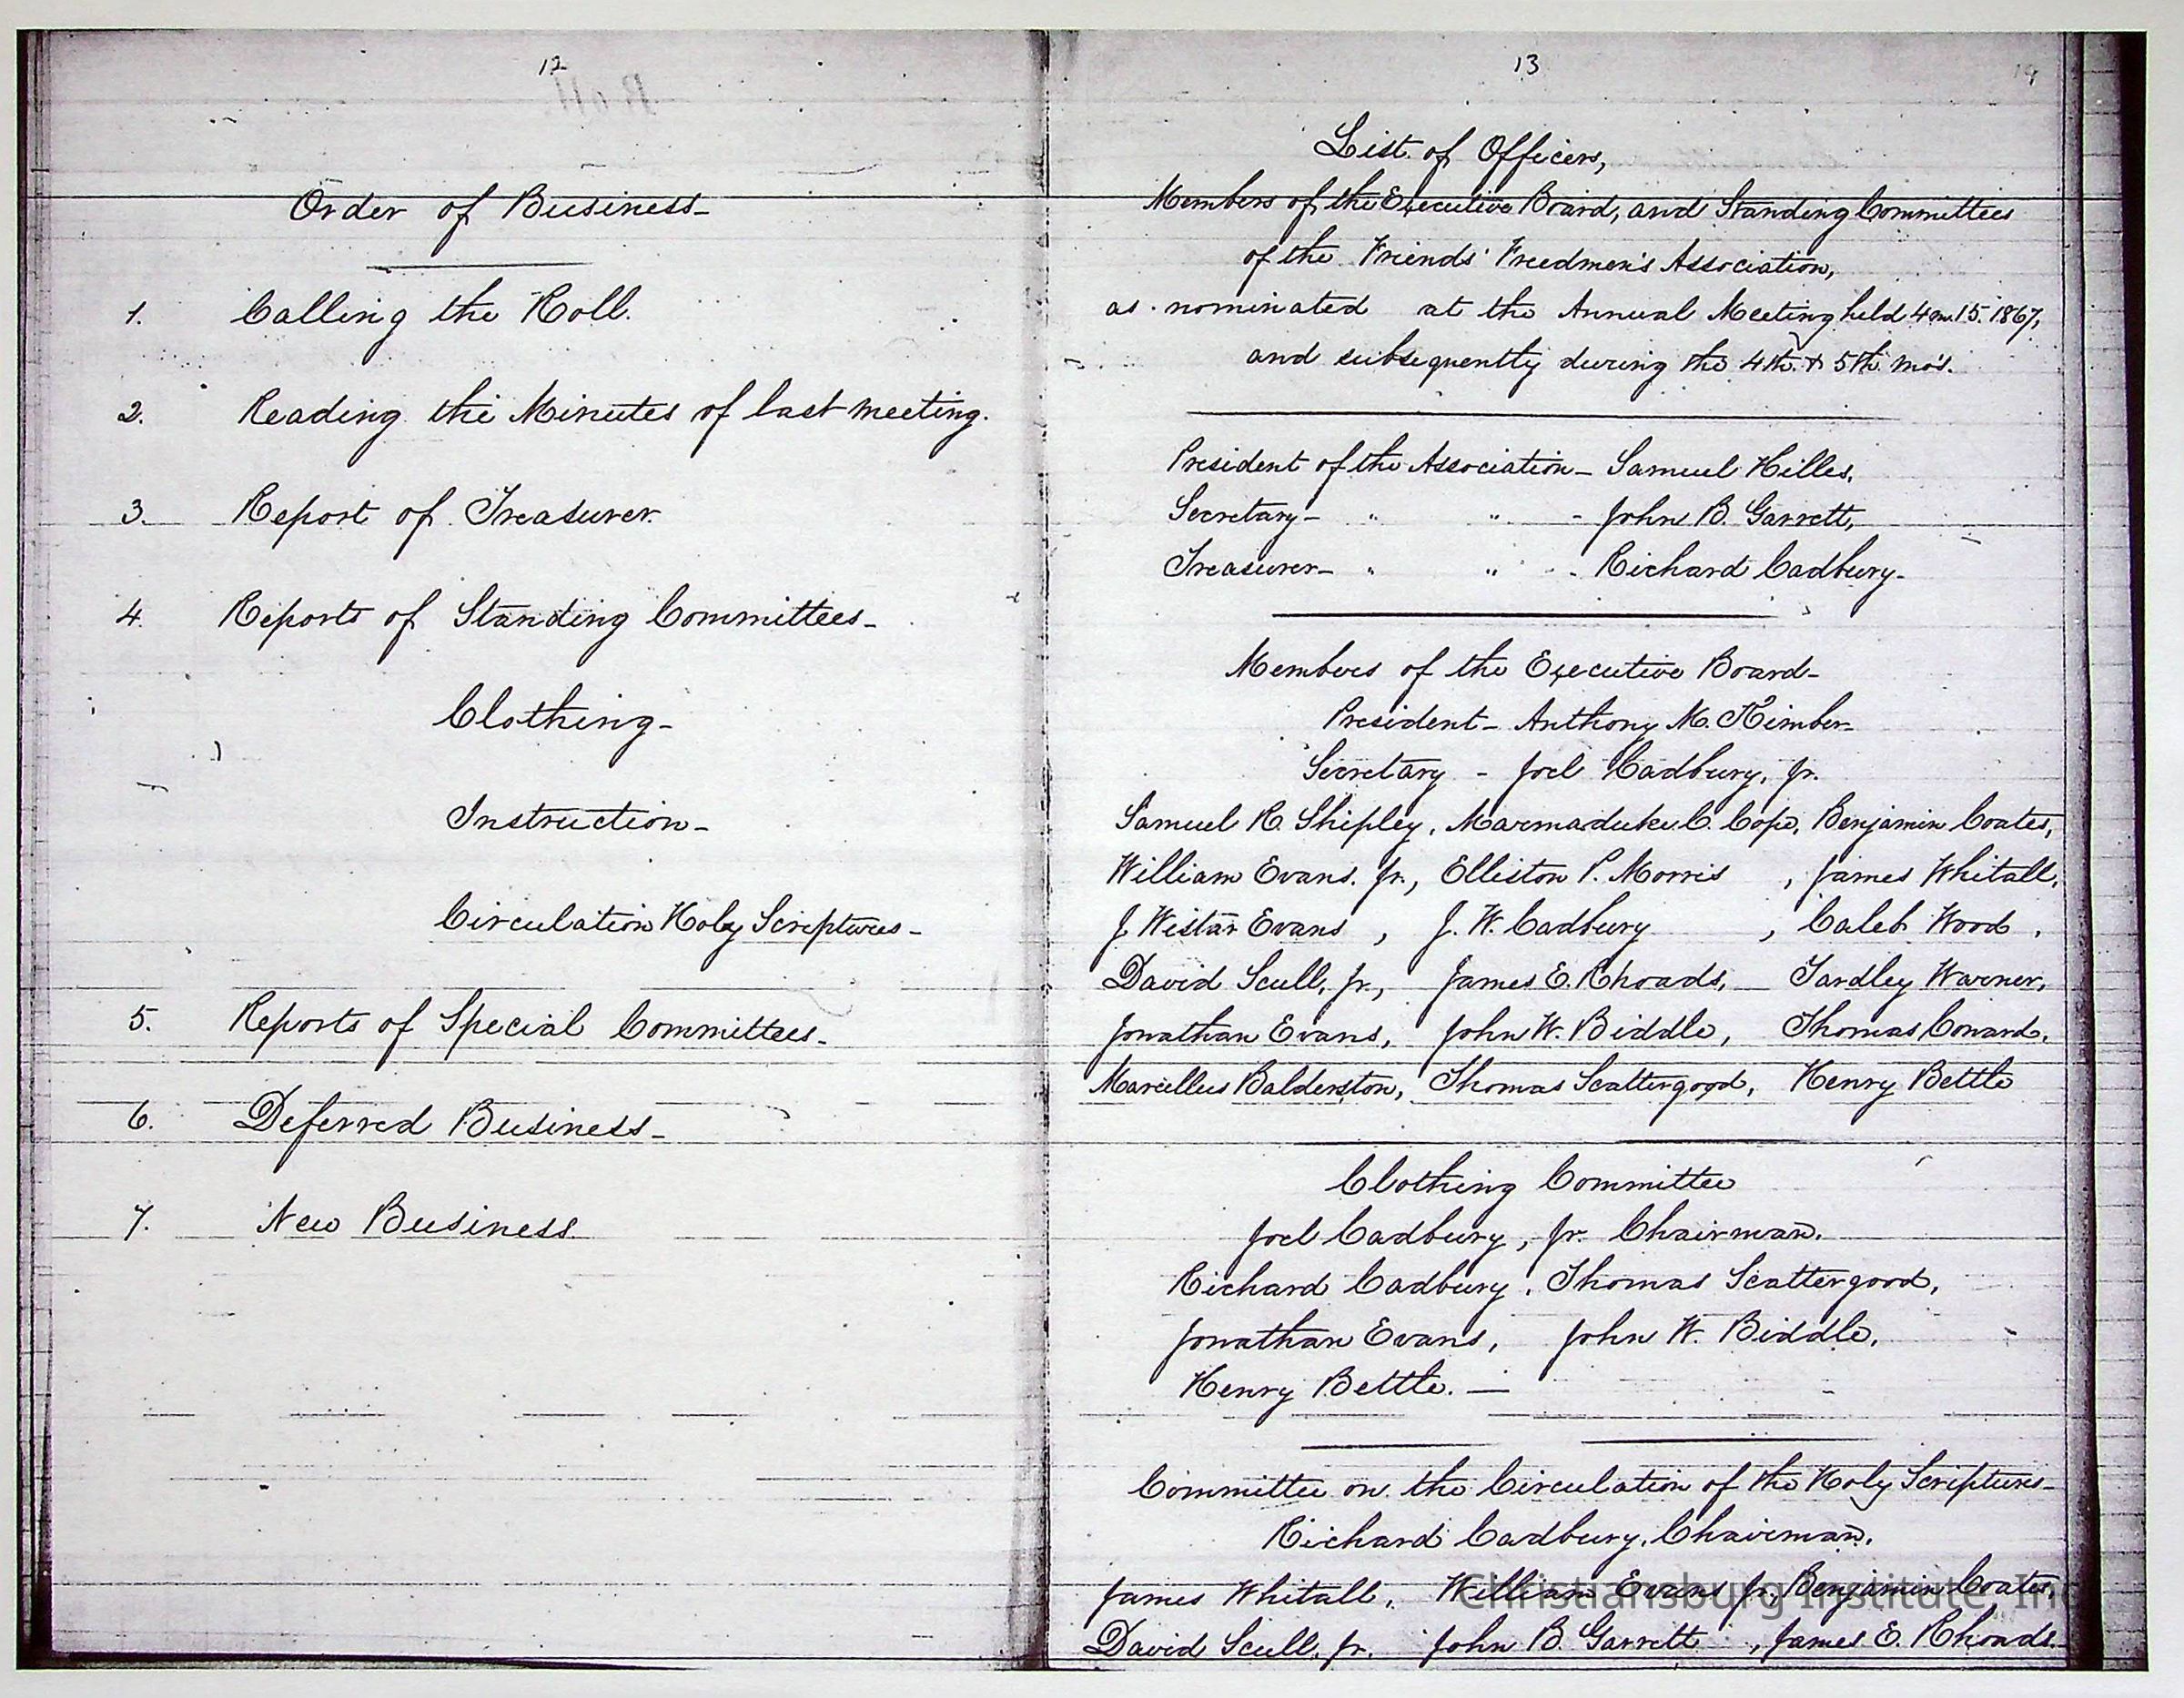 12
Order of Business-
1. Calling the Roll.
2. Reading the Minutes of last meeting.
3. Report of Treasurer.
4. Reports of Standing Committees-
Clothing-
Instruction-
Circulation Holy Scriptures-
5. Reports of Special Committees-
6. Deferred Business-
7. New Business
13
List of Officers,
Members of the Executive Board, and Standing Committees
of the Friends' Freedmen's Association,
as nominated at the Annual Meeting held 4 m. 15. 1867,
and subsequently during the 4th. & 5th mo's.
President of the Association- Samuel Hilles,
Secretary- " " - John B. Garrett,
Treasurer- " " - Richard Cadbury-
Members of the Executive Board-
President- Anthony M. Kimber-
Secretary - Joel Cadbury, Jr.
Samuel R. Shipley, Marmaduke C. Cope, Benjamin Coates,
William Evans, Jr., Elliston P. Morris, James Whitall,
J. Wistar Evans, J. W. Cadbury, Caleb Wood,
David Scull, Jr., James E. Rhoads, Yardley Warner,
Jonathan Evans, John W. Biddle, Thomas Conard,
Marcellus Balderston, Thomas Scattergood, Henry Bettle
Clothing Committee
Joel Cadbury, Jr. Chairman.
Richard Cadbury, Thomas Scattergood,
Jonathan Evans, John W. Biddle,
Henry Bettle. -
Committee on the Circulation of the Holy Scriptures-
Richard Cadbury, Chairman.
James Whitall, William Evans Jr., Benjamin Coates,
David Scull, Jr. John B. Garrett, James E. Rhoads-
Christiansburg Institute, Inc